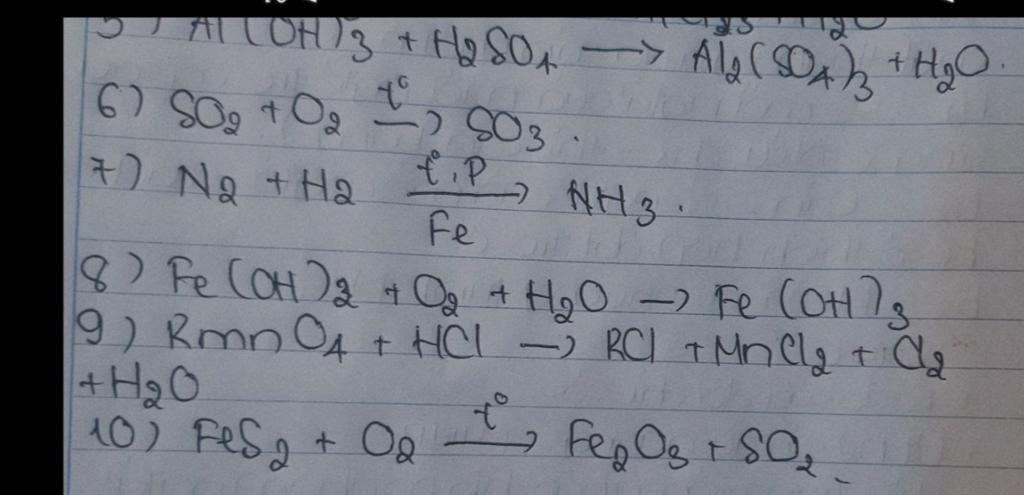 5) Al(OH)3 + H2SO4 → Al2(SO4)3 + H2O.
6) SO2 + O2 t° → SO3.
7) N2 + H2 t°, P → Fe NH3.
8) Fe(OH)2 + O2 + H2O → Fe(OH)3
9) RmnO4 + HCl → RCl + MnCl2 + Cl2
+ H2O
10) FeS2 + O2 t° → Fe2O3 + SO2